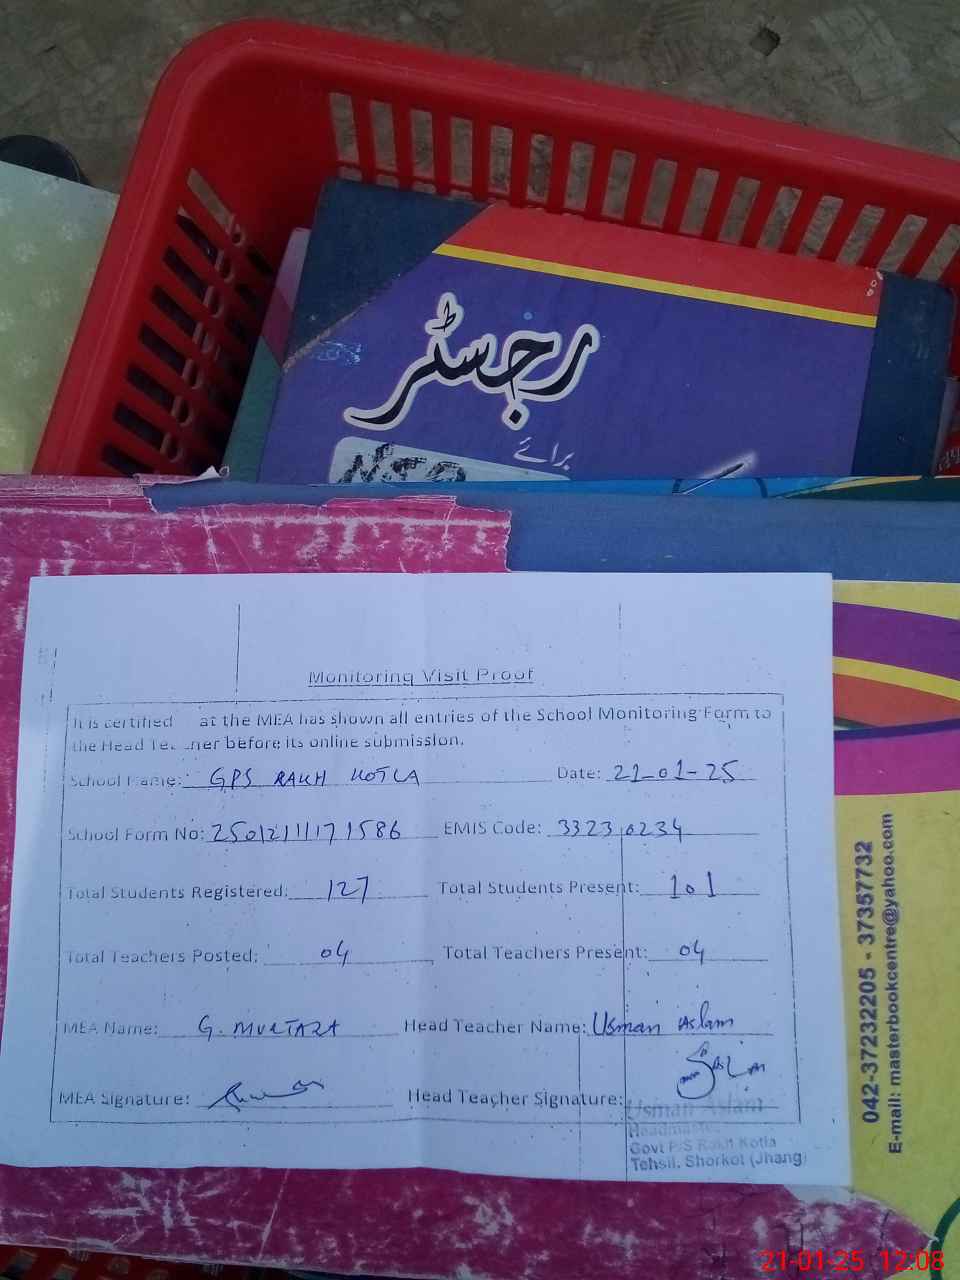 رجسٹر
برائے
Monitoring Visit Proof
It is certified at the MEA has shown all entries of the School Monitoring Form to
the Head Teacher before its online submission.
School Name: GPS RAKH KOTLA Date: 21-01-25
School Form No: 25012111171586 EMIS Code: 33230234
Total Students Registered: 127 Total Students Present: 101
Total Teachers Posted: 04 Total Teachers Present: 04
MEA Name: G. MURTAZA Head Teacher Name: Usman Aslam
MEA Signature: Head Teacher Signature:
Usman Aslam
Headmaster
Govt P/S Rakh Kotla
Tehsil. Shorkot (Jhang)
042-37232205 - 37357732
E-mail: masterbookcentre@yahoo.com
21-01-25 12:08